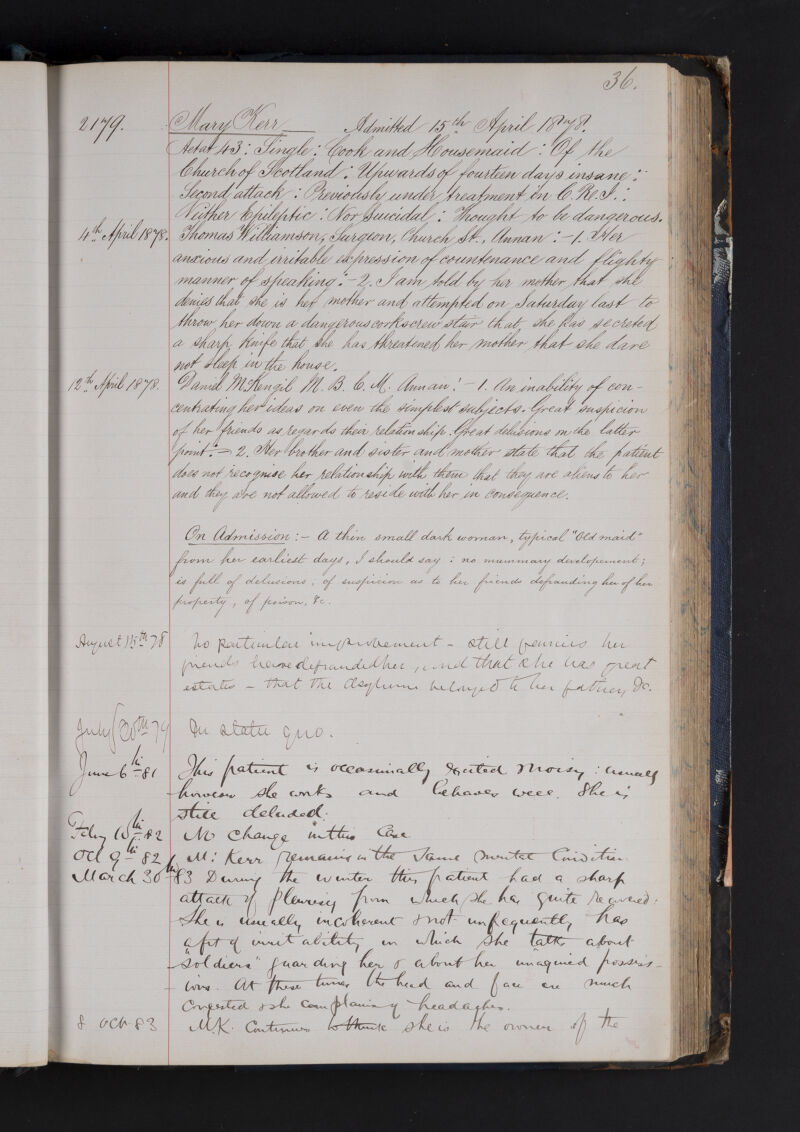 36.
2179. Mary Kerr Admitted 15th April 1878.
Aetat 43: Single: Cook and Housemaid: Of the
Church of Scotland: Upwards of fourteen days insane:
Second attack: Previously under treatment in C.R.I.:
Neither Epileptic: Nor Suicidal: Thought to be dangerous.
4th April 1878. Thomas Williamson, Surgeon, Church St., Annan:- 1. Her
anxious and irritable expression of countenance and flighty
manner of speaking:- 2. I am told by her mother that she
denies that she is her mother and attempted on Saturday last to
throw her down a dangerous corkscrew stair that she has secreted
a sharp knife that she has threatened her mother that she dare
not sleep in the house.
12th April 1878. David M. B. C. M. Annan:- 1. An inability of con-
centrating her ideas on even the simplest subjects. Great suspicion
of her friends as regards their relationship. Great delusions on the latter
point:- 2. Her brother and sister and mother state that the patient
does not recognise her relationship with them that they are aliens to her
and they are not allowed to reside with her in consequence.
On Admission:- A thin small dark woman, typical "Old maid"
from her earliest days, I should say: no mammary developement;
is full of delusions, of suspicion as to her friends defrauding her of her
property, of poison, &c.
August 15th 78 No particular improvement - still fancies her
friends have defrauded her, and that she has great
estates - that the Asylum belonged to her father, &c.
July 20th 79 In statu quo.
June 6th 81 This patient is occasionally excited & noisy: usually
however she works and behaves well. She is
still deluded.
Feby 10th 82 No change in this Case
Oct 9th 82 M. Kerr remains in the same mental Condition
March 30th 83 During the winter this patient had a sharp
attack of Pleurisy from which she has quite recovered.
She is usually incoherent & not unfrequently has
a fit of irritability in which she talks about
"soldiers" guarding her & about her imagined possess-
ions. At these times the head and face are much
Congested & she complains of headaches.
8 Oct 83 M.K. Continues to think she is the owner of the